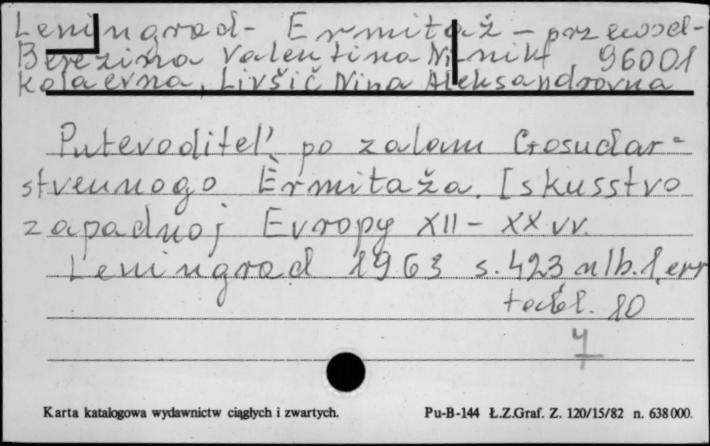 Leningrad - Ermitaž - przewod-
Berezina Valentina Ni- nikt 96001
kolaevna, Livšič Nina Aleksandrovna
Putevoditel' po zalam Gosudar-
stvennogo Èrmitaža. Iskusstvo
zapadnoj Evropy XII - XX vv.
Leningrad 1963 s. 423, alb. 1, err
tabl. 80
4
Karta katalogowa wydawnictw ciągłych i zwartych. Pu-B-144 Ł.Z.Graf. Z. 120/15/82 n. 638 000.